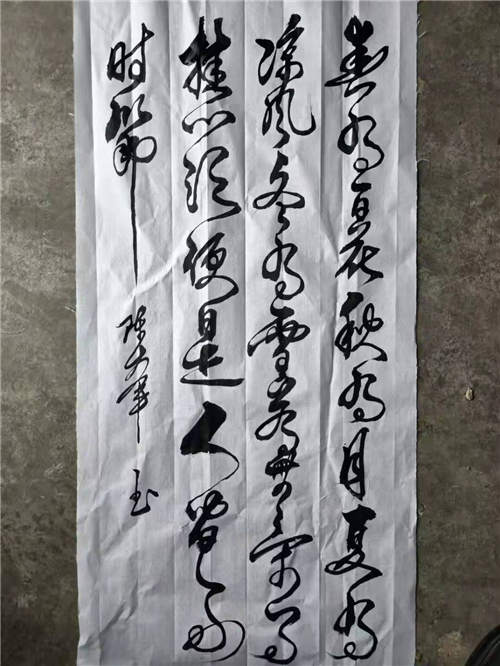 春有百花秋有月夏有
凉风冬有雪若無闲事
挂心头便是人间好
时節
陈大军